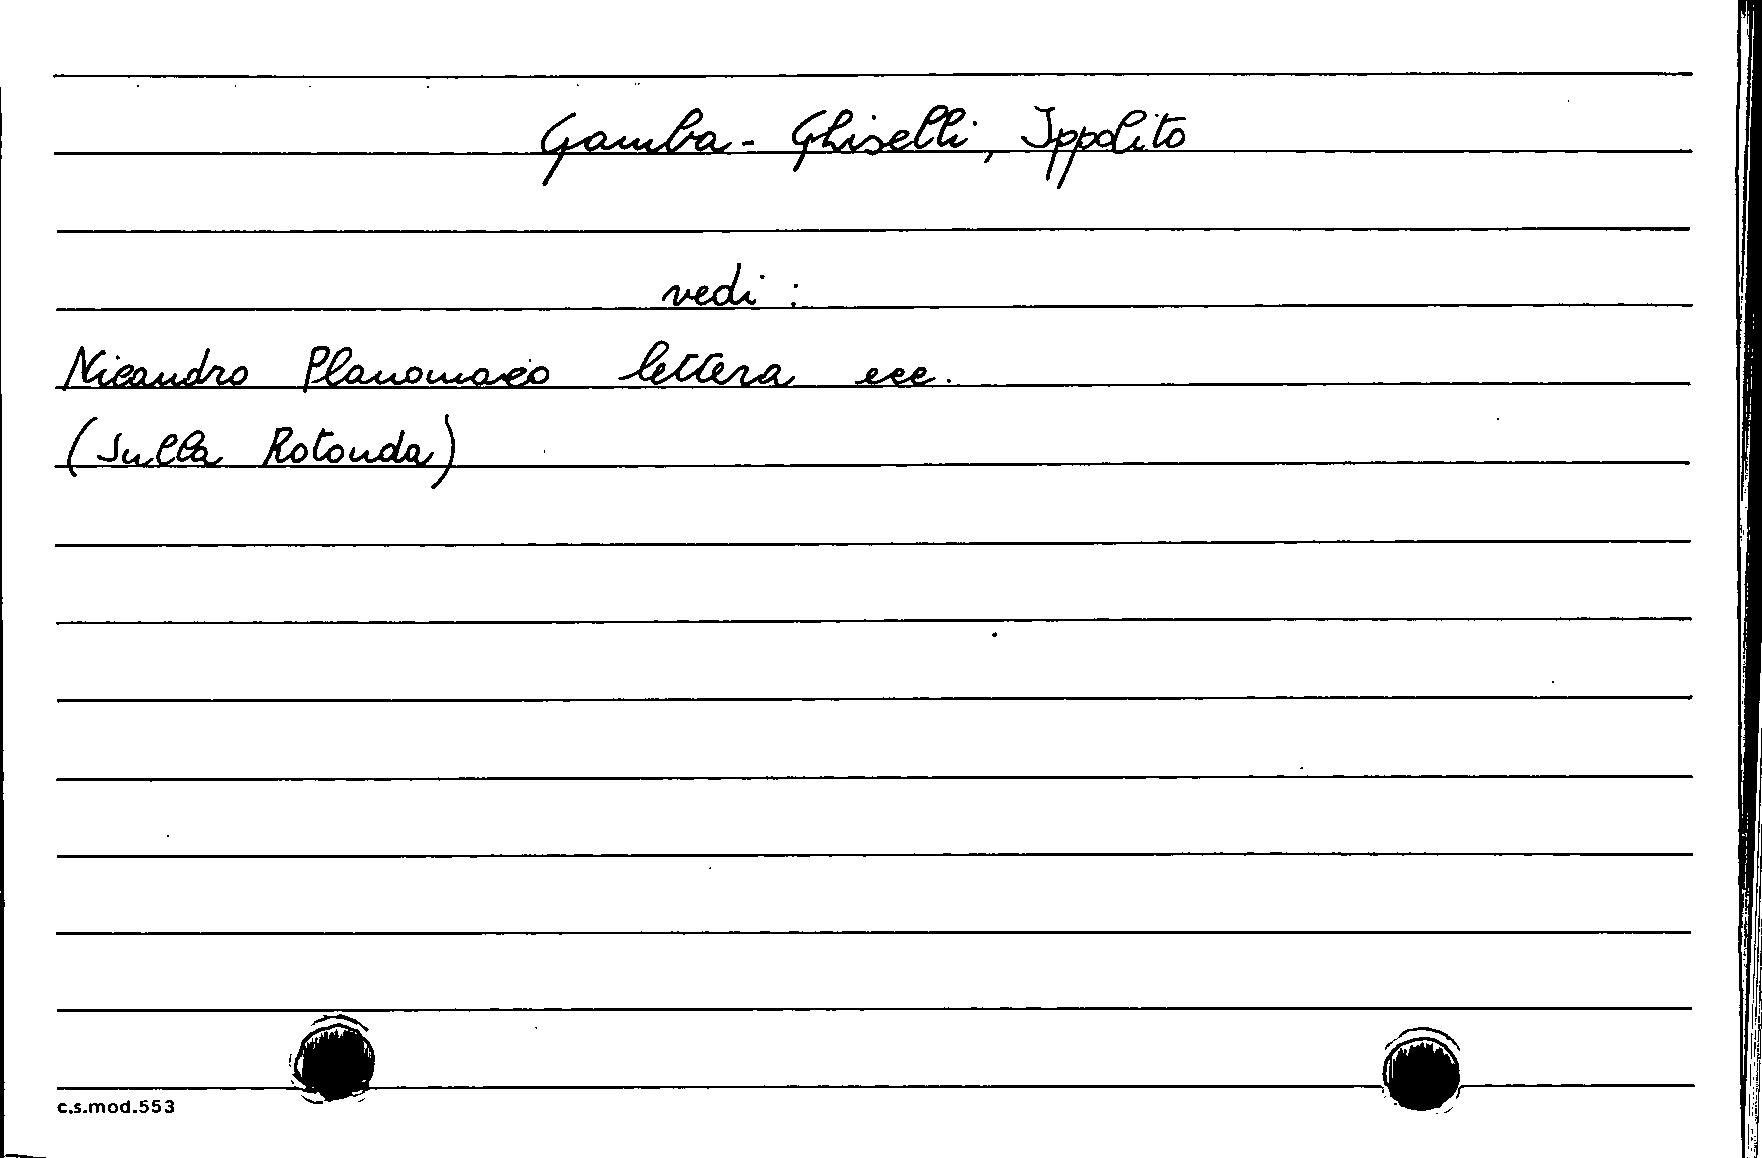 Gamba - Ghiselli, Ippolito
vedi :
Nicandro Planomaco lettera ecc.
(Sulla Rotonda)
c.s.mod.553